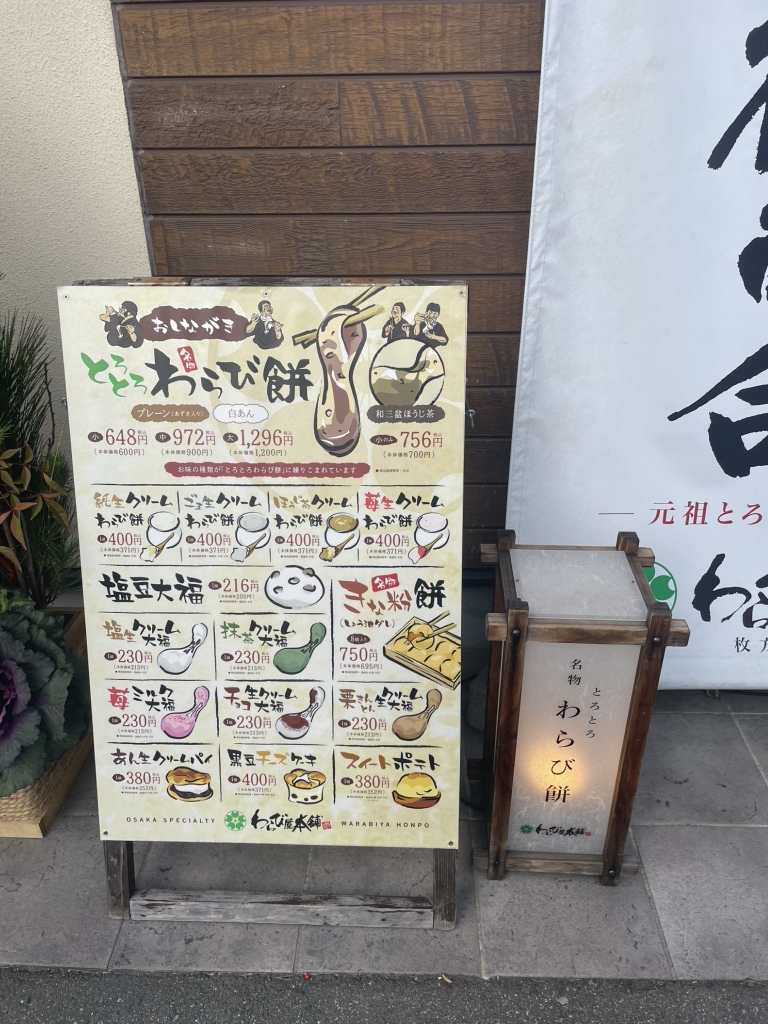 おしながき
とろとろ
名物
わらび餅
プレーン(あずき入り)
白あん
和三盆ほうじ茶
小 648円 税込
(本体価格600円)
中 972円 税込
(本体価格900円)
大 1,296円 税込
(本体価格1,200円)
小のみ 756円 税込
(本体価格700円)
お味の種類が「とろとろわらび餅」に練りこまれています
純生クリーム
わらび餅
1個 400円 税込
(本体価格371円)
ごま生クリーム
わらび餅
1個 400円 税込
(本体価格371円)
ほうじ茶クリーム
わらび餅
1個 400円 税込
(本体価格371円)
苺生クリーム
わらび餅
1個 400円 税込
(本体価格371円)
塩豆大福
1個 216円 税込
(本体価格200円)
名物
きな粉餅
(しょうゆダレ)
8個入り
750円 税込
(本体価格695円)
塩生クリーム
大福
1個 230円 税込
(本体価格213円)
抹茶生クリーム
大福
1個 230円 税込
(本体価格213円)
苺ミルク
大福
1個 230円 税込
(本体価格213円)
チョコ生クリーム
大福
1個 230円 税込
(本体価格213円)
栗きんとん生クリーム
大福
1個 230円 税込
(本体価格213円)
あん生クリームパイ
1個 380円 税込
(本体価格352円)
黒豆チーズケーキ
1個 400円 税込
(本体価格371円)
スイートポテト
1個 380円 税込
(本体価格352円)
OSAKA SPECIALTY
わらび屋本舗
WARABIYA HONPO
名物
とろとろ
わらび餅
わらび屋本舗
合
― 元祖とろ
わら
枚方